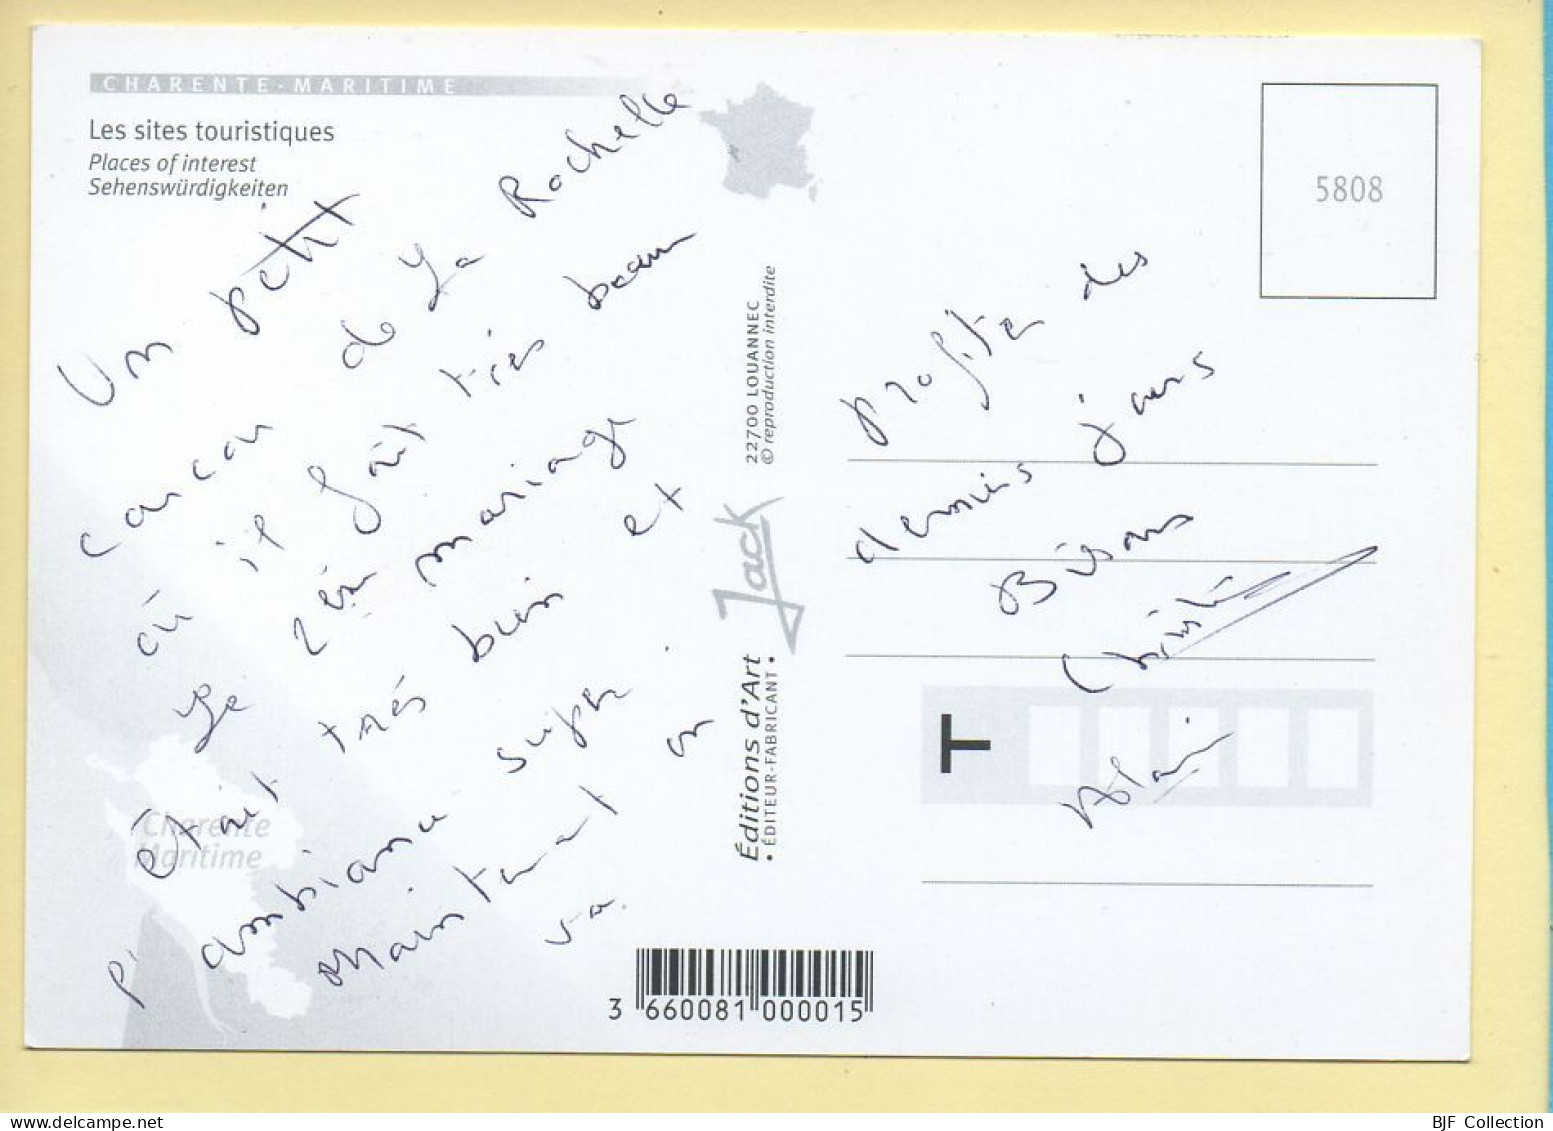 CHARENTE-MARITIME
Les sites touristiques
Places of interest
Sehenswürdigkeiten
Un petit
coucou de La Rochelle
où il fait très beau
Le 2èm mariage
était très bien et
l'ambiance super.
Maintenant on
va
profiter des
derniers jours
Bisous
Alain
5808
22700 LOUANNEC
© reproduction interdite
Jack
Éditions d'Art
• ÉDITEUR-FABRICANT •
Charente
Maritime
T
3 660081 000015
BJF Collection